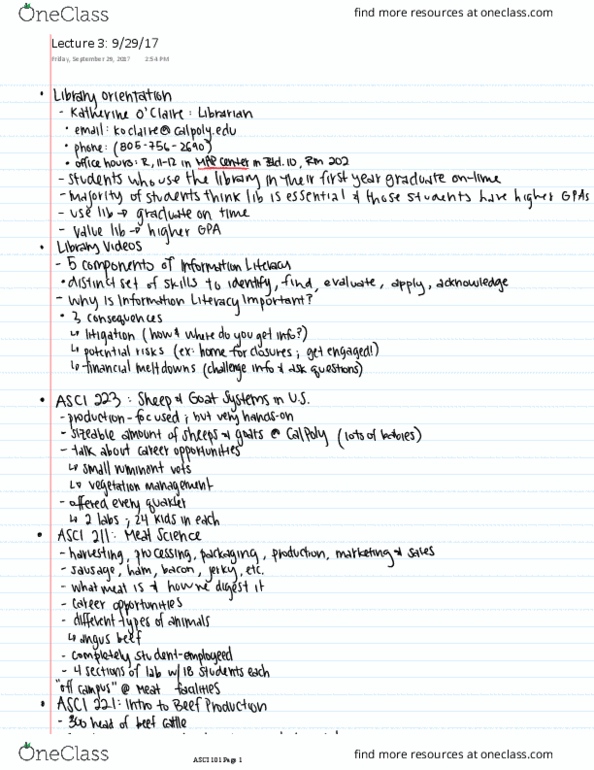 OneClass
find more resources at oneclass.com
Lecture 3: 9/29/17
Friday, September 29, 2017 2:54 PM
• Library orientation
- Katherine O'Claire: Librarian
• email: koclaire@calpoly.edu
• phone: (805-756-2690)
• office hours: R, 11-12 in MPP Center in Bld. 10, Rm 202
- students who use the library in their first year graduate on-time
- majority of students think lib is essential & those students have higher GPAs
- use lib → graduate on time
- value lib → higher GPA
• Library Videos
- 5 components of Information Literacy
• distinct set of skills to identify, find, evaluate, apply, acknowledge
- Why is Information Literacy Important?
• 3 consequences
↳ litigation (how & where do you get info?)
↳ potential risks (ex: home for closures; get engaged!)
↳ financial meltdowns (challenge info & ask questions)
• ASCI 223: Sheep & Goat Systems in U.S.
- production-focused; but very hands-on
- sizeable amount of sheeps & goats @ CalPoly (lots of babies)
- talk about career opportunities
↳ small ruminant vets
↳ vegetation management
- offered every quarter
↳ 2 labs; 24 kids in each
• ASCI 211: Meat Science
- harvesting, processing, packaging, production, marketing & sales
- sausage, ham, bacon, jerky, etc.
- what meat is & how we digest it
- career opportunities
- different types of animals
↳ angus beef
- completely student-employeed
- 4 sections of lab w/ 18 students each
"off campus" @ Meat facilities
• ASCI 221: Intro to Beef Production
- 300 head of beef cattle
OneClass
ASCI 101 Page 1
find more resources at oneclass.com